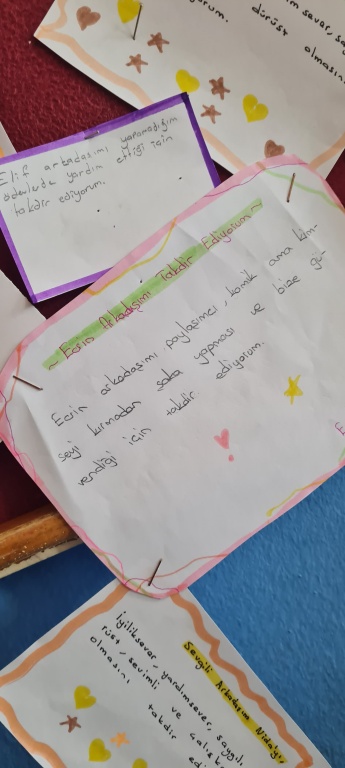 sever, say
dürüst olmasını
yorum.
Elif arkadaşımı yapamadığım
ödevlerde yardım ettiği için
takdir ediyorum.
~ Ecrin Arkadaşımı Takdir Ediyorum ~
Ecrin arkadaşımı paylaşımcı, komik ama kim-
seyi kırmadan şaka yapması ve bize gü-
vendiği için takdir ediyorum.
Sevgili Arkadaşım Nida'yı,
İyiliksever, yardımsever, saygılı,
rüst, sevimli ve çalışk
olmasını takdir
edi